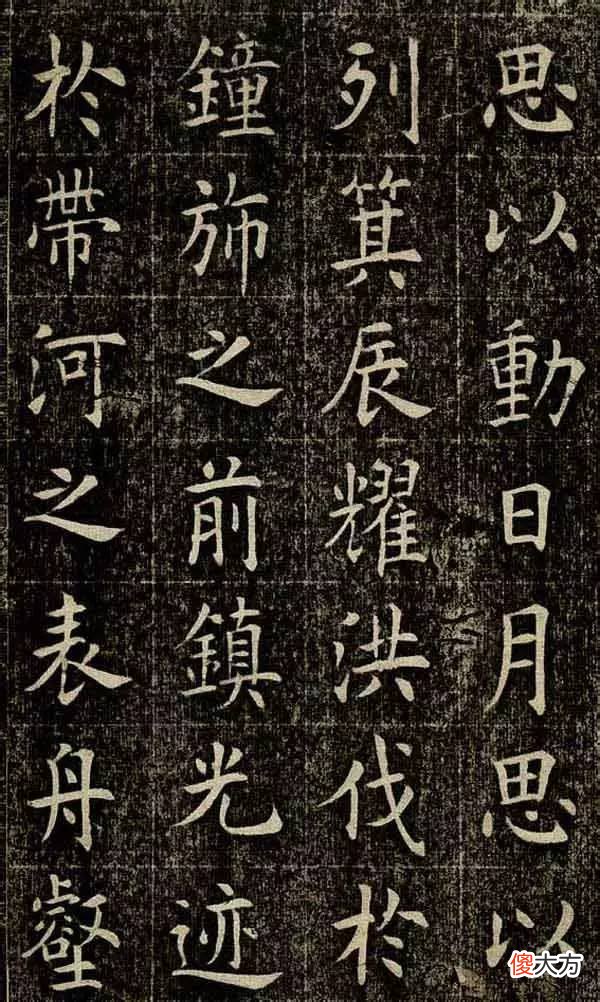 思以動日月思以
列箕辰耀洪伐於
鐘旆之前鎮光迹
於帶河之表舟壑
傻大方